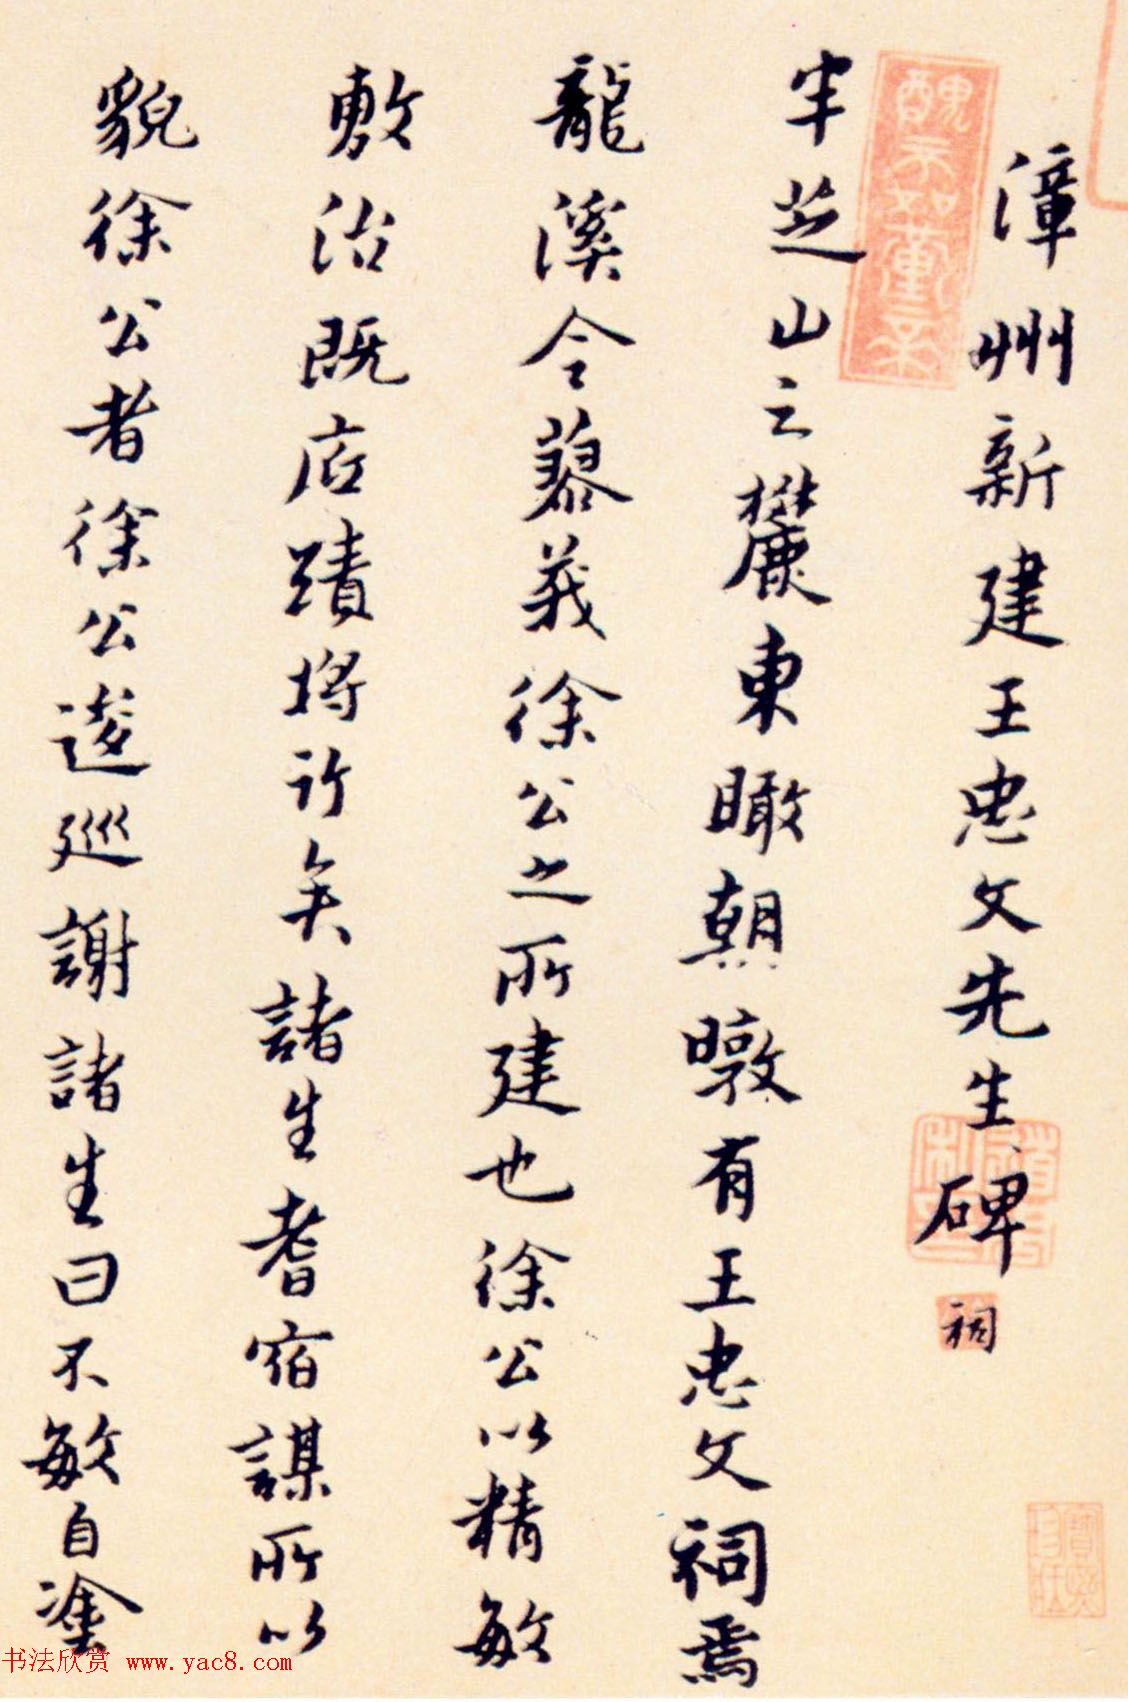 漳州新建王忠文先生碑祠
半芝山之麓東瞰朝暾有王忠文祠焉
龍溪令蓼莪徐公之所建也徐公以精敏
敷治既店蹟將竹矣諸生耆宿謀所以
貌徐公者徐公逡巡謝諸生曰不敏自塗
书法欣赏 www.yac8.com